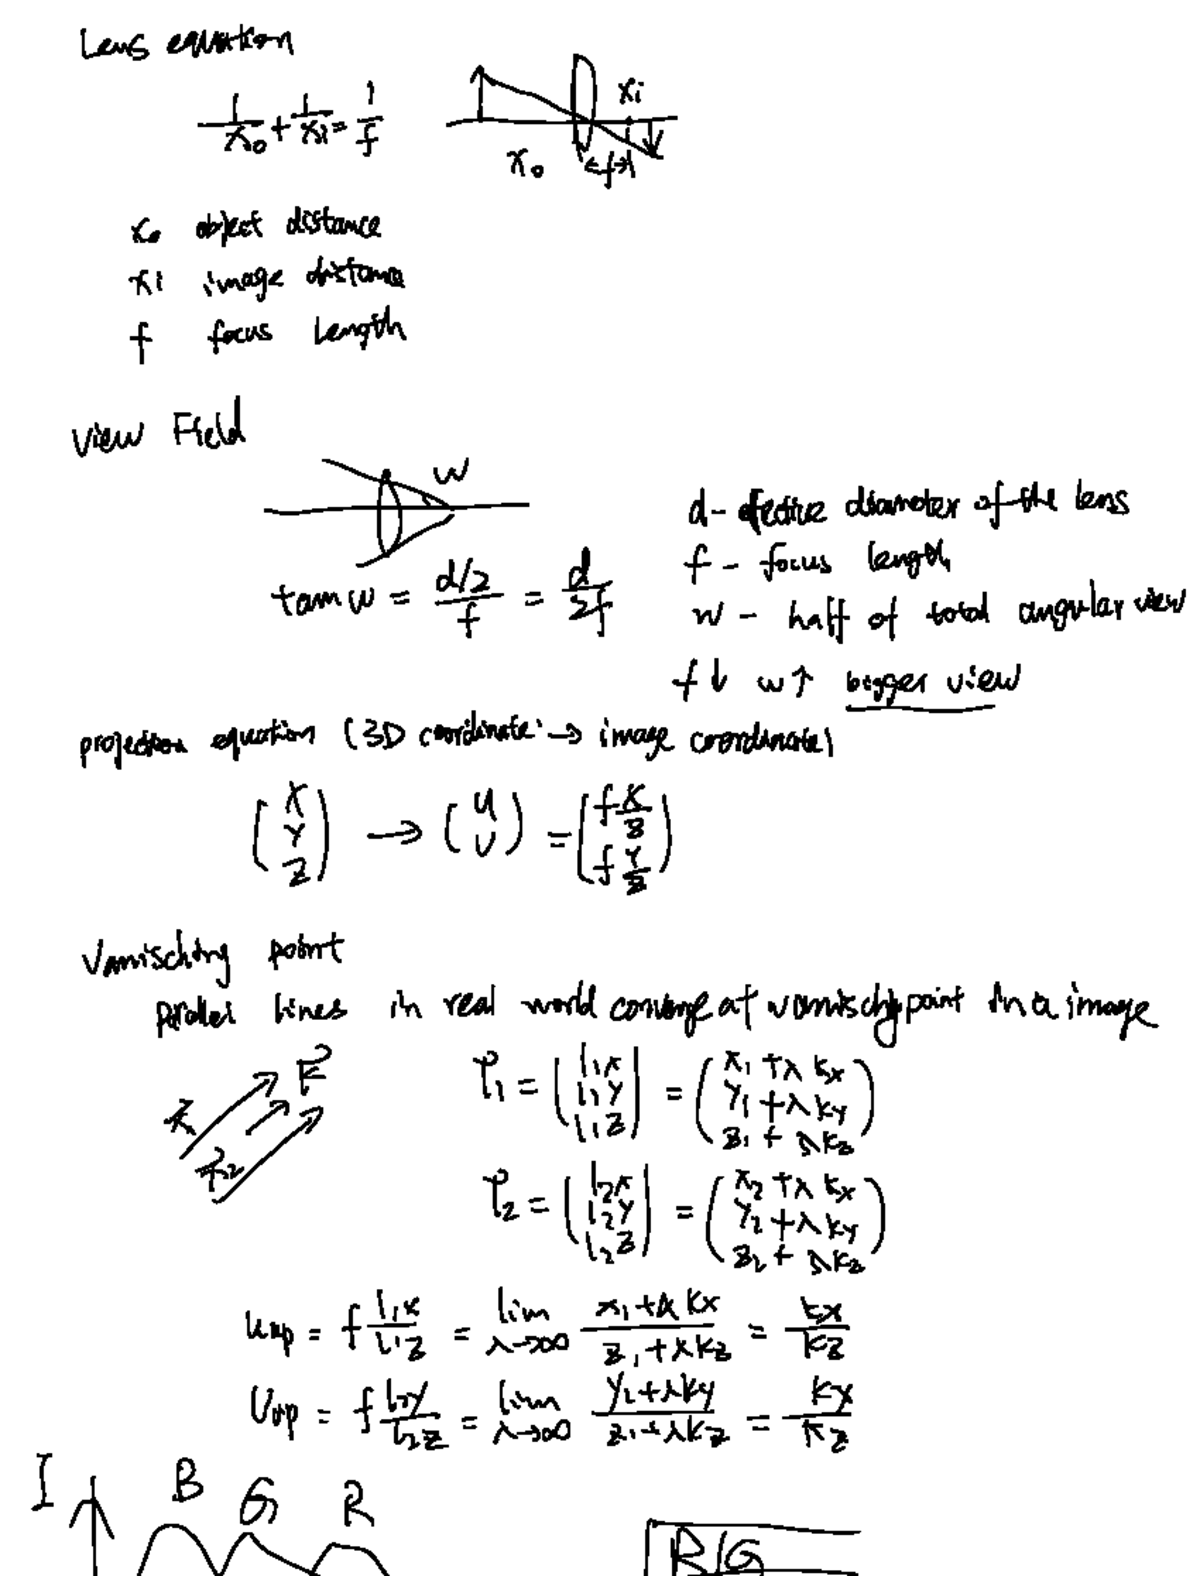 Lens equation
1/x₀ + 1/xi = 1/f
xi
x₀ f
x₀ object distance
xi image distance
f focus length
View Field
w
d - effective diameter of the lens
f - focus length
tan w = (d/2)/f = d/2f
w - half of total angular view
f↓ w↑ bigger view
projection equation (3D coordinate → image coordinate)
(X Y Z) → (u v) = (f X/Z f Y/Z)
Vanisching point
Parallel lines in real world converge at vanisching point in a image
l₁ = (l₁x l₁y l₁z) = (x₁ + λkx y₁ + λky z₁ + λkz)
l₂ = (l₂x l₂y l₂z) = (x₂ + λkx y₂ + λky z₂ + λkz)
Uvp = f l₁x/l₁z = lim λ→∞ (x₁ + λkx)/(z₁ + λkz) = kx/kz
Vvp = f l₂y/l₂z = lim λ→∞ (y₂ + λky)/(z₁ + λkz) = ky/kz
I B G R
R G